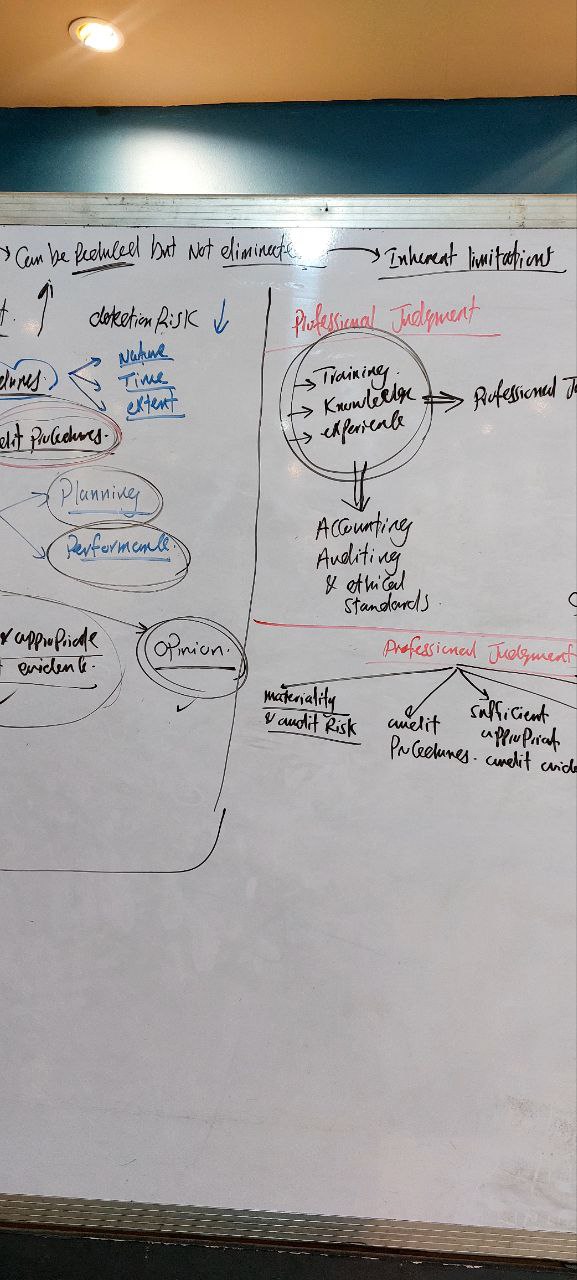 Can be Reduced but Not eliminate → Inherent limitations
detection Risk ↓
Nature
Time
extent
dit Procedures.
Planning
Performance.
& appropriate
evidence.
Opinion.
Professional Judgment
→ Training.
→ Knowledge
→ experience
⇒ Professional J
Accounting
Auditing
& ethical
Standards.
Professional Judgment
materiality
& audit Risk
audit
Procedures.
Sufficient
appropriat
audit evide